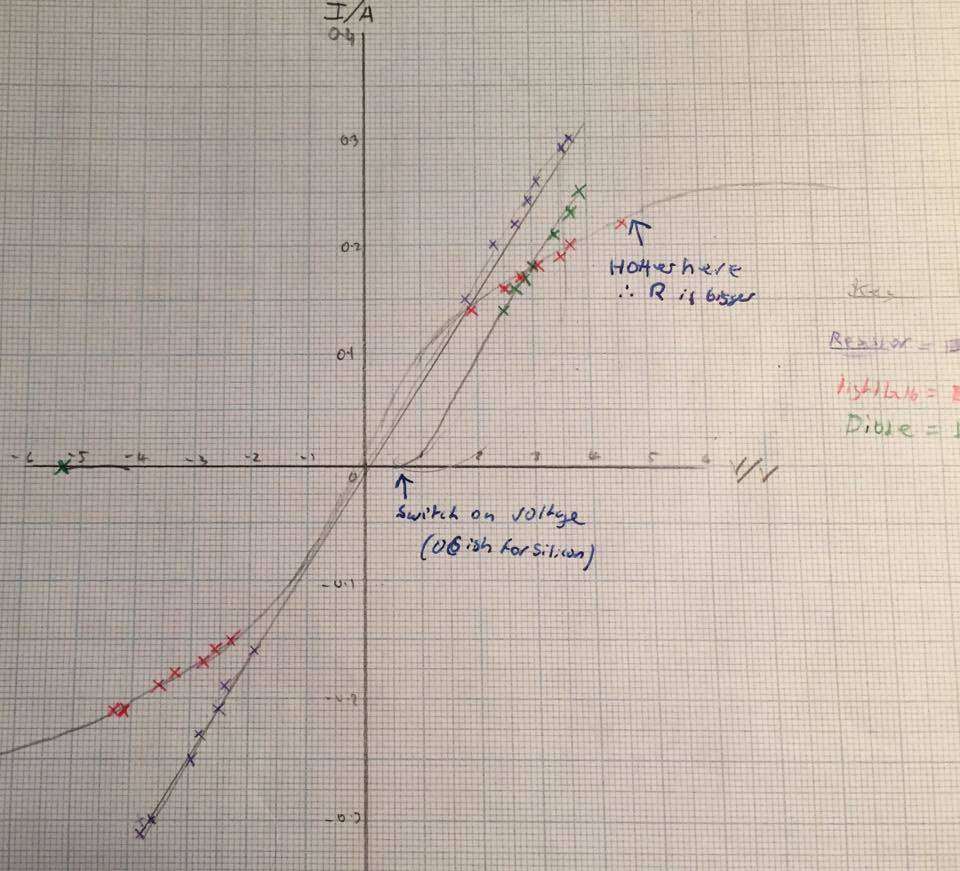 I/A
0.4
0.3
0.2
Hotter here
∴ R is bigger
Key
Resistor =
0.1
lightbulb =
Diode =
-6 -5 -4 -3 -2 -1 2 3 4 5 6 V/V
0
Switch on voltage
(06 ish for Silicon)
-0.1
-0.2
-0.3